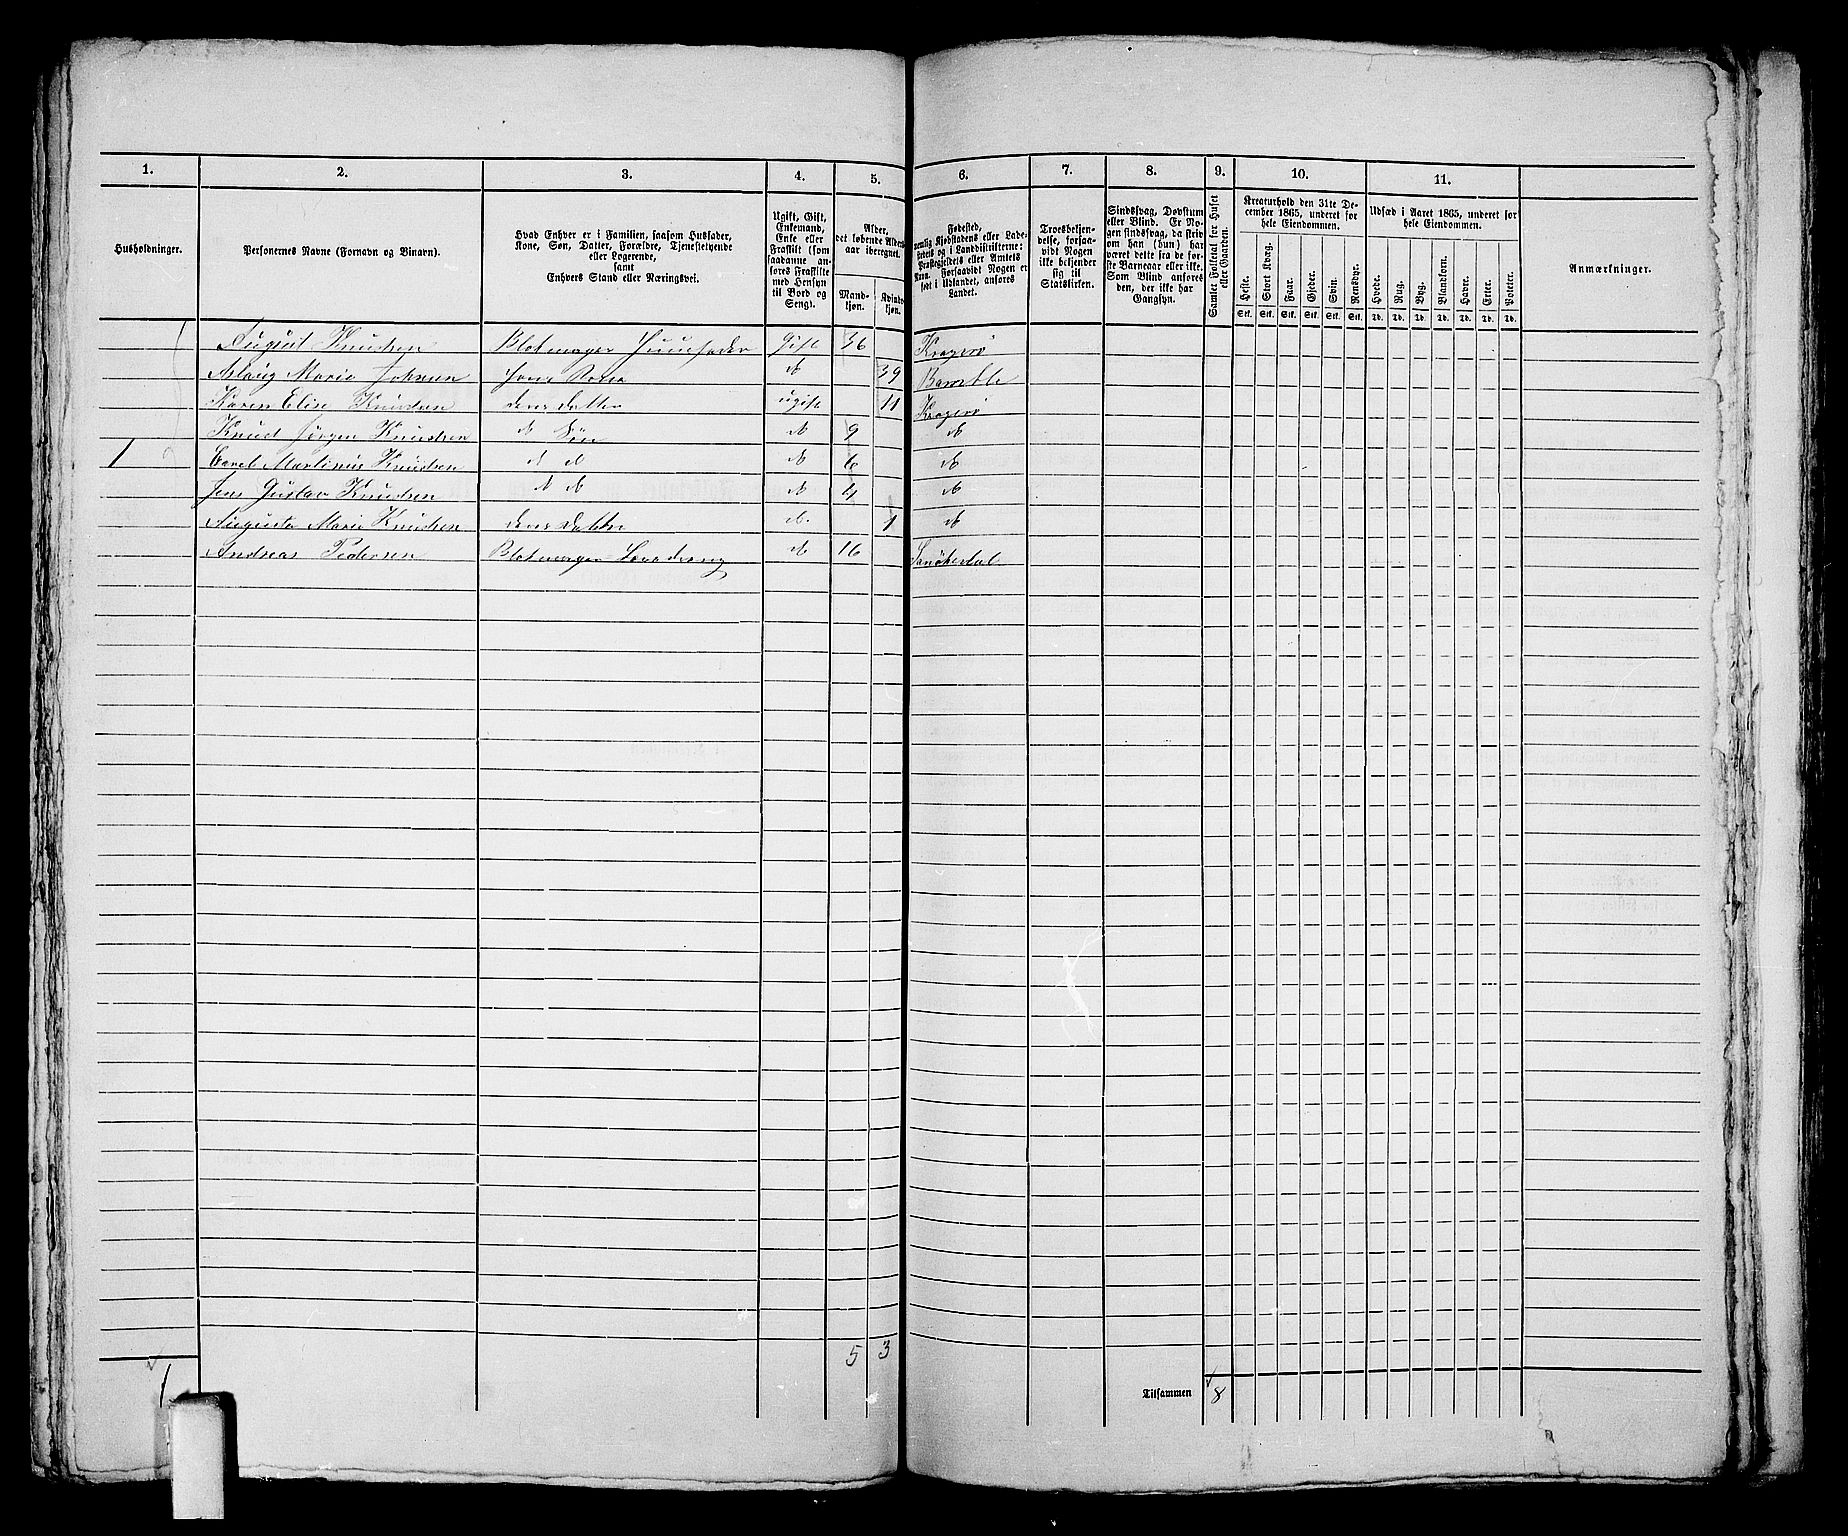 1. 2. 3. 4. 5. 6. 7. 8. 9. 10. 11.
Husholdninger.
Personernes Navne (Fornavn og Binavn).
Hvad Enhver er i Familien, saasom Husfader,
Kone, Søn, Datter, Forældre, Tjenestetyende
eller Logerende,
samt
Enhvers Stand eller Næringsvei.
Ugift, Gift,
Enkemand,
Enke eller
Fraskilt (som
saadanne an-
føres Fraskilte
med Hensyn
til Bord og
Seng).
Alder,
det løbende Alders-
aar iberegnet.
Mand-
kjøn.
Kvinde-
kjøn.
Fødested,
nemlig Kjøbstadens eller Lade-
stedets og i Landdistrikterne:
Præstegjeldets eller Amtets
Navn. Forsaavidt Nogen er
født i Udlandet, anføres
Landet.
Troesbekjen-
delse, forsaa-
vidt Nogen
ikke bekjender
sig til
Statskirken.
Sindssvag, Døvstum
eller Blind. Er No-
gen sindssvag, da skriv
om han (hun) har
været dette fra de før-
ste Barneaar eller ikke.
Som Blind anføres
den, der ikke har
Gangsyn.
Samlet Folketal for Huset
eller Gaarden.
Kreaturhold den 31te De-
cember 1865, underet for
hele Eiendommen.
Heste. Stort Kvæg. Faar. Gjeder. Svin. Rensdyr.
Stk. Stk. Stk. Stk. Stk. Stk.
Udsæd i Aaret 1865, underet for
hele Eiendommen.
Hvede. Rug. Byg. Blandkorn. Havre. Erter. Poteter.
Td. Td. Td. Td. Td. Td. Td.
Anmærkninger.
August Knudsen Blokmager Huusfader Gift 36 Kragerø
Aslaug Marie Johnsen Hans Kone do 39 Bamble
Karen Elise Knudsen deres Datter ugift 11 Kragerø
Knud Jørgen Knudsen do Søn do 9 do
1 Carel Martinius Knudsen do do do 6 do
Jens Gustav Knudsen do do do 4 do
Augusta Marie Knudsen deres Datter do. 1 do
Andreas Pedersen Blokmager do 16 Sanökedal
5 3
1 Tilsammen 8